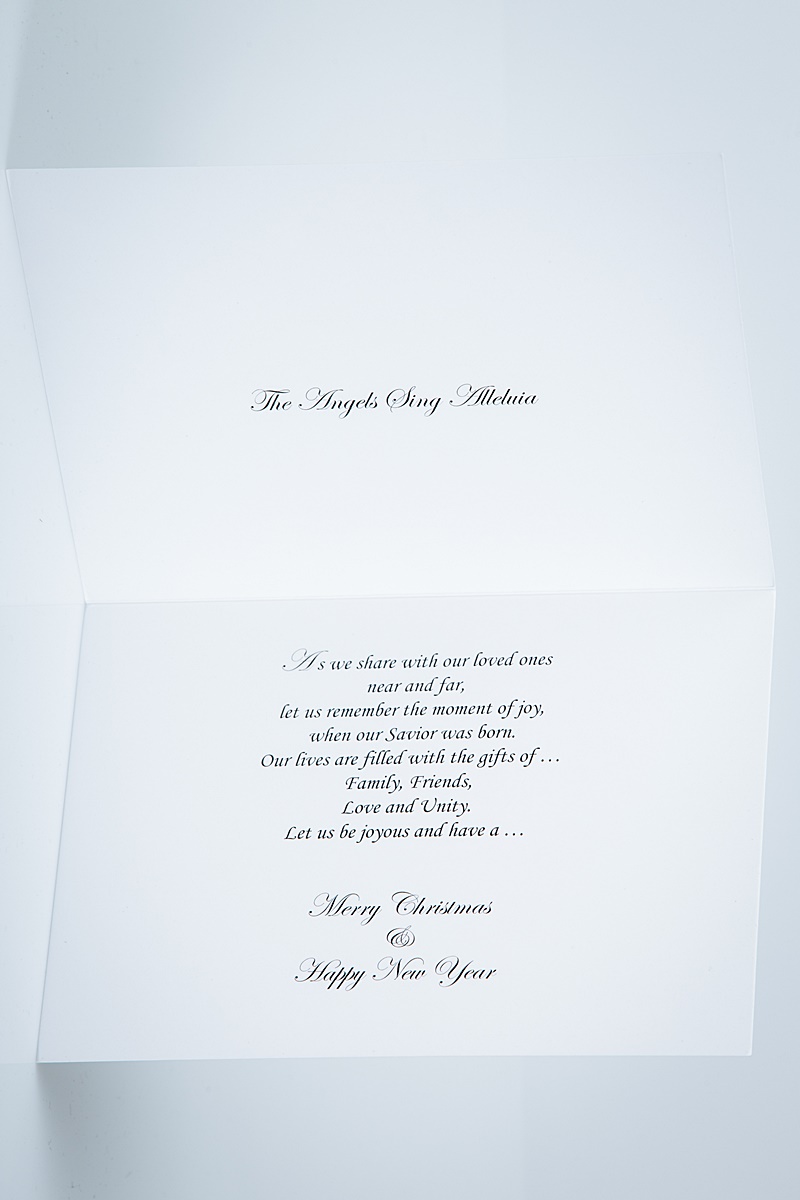 The Angels Sing Alleluia
As we share with our loved ones
near and far,
let us remember the moment of joy,
when our Savior was born.
Our lives are filled with the gifts of . . .
Family, Friends,
Love and Unity.
Let us be joyous and have a . . .
Merry Christmas
&
Happy New Year